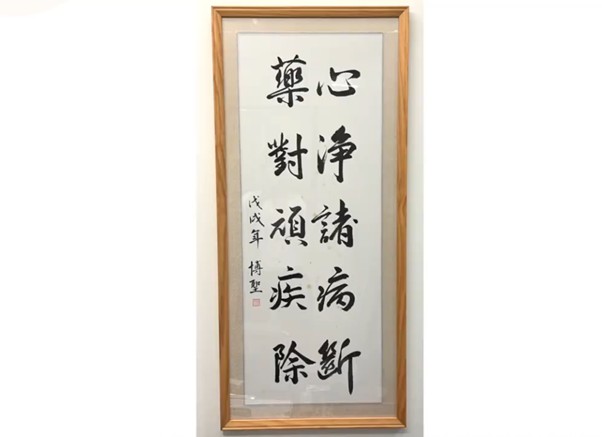 心淨諸病斷
藥對頑疾除
戊戌年 博聖